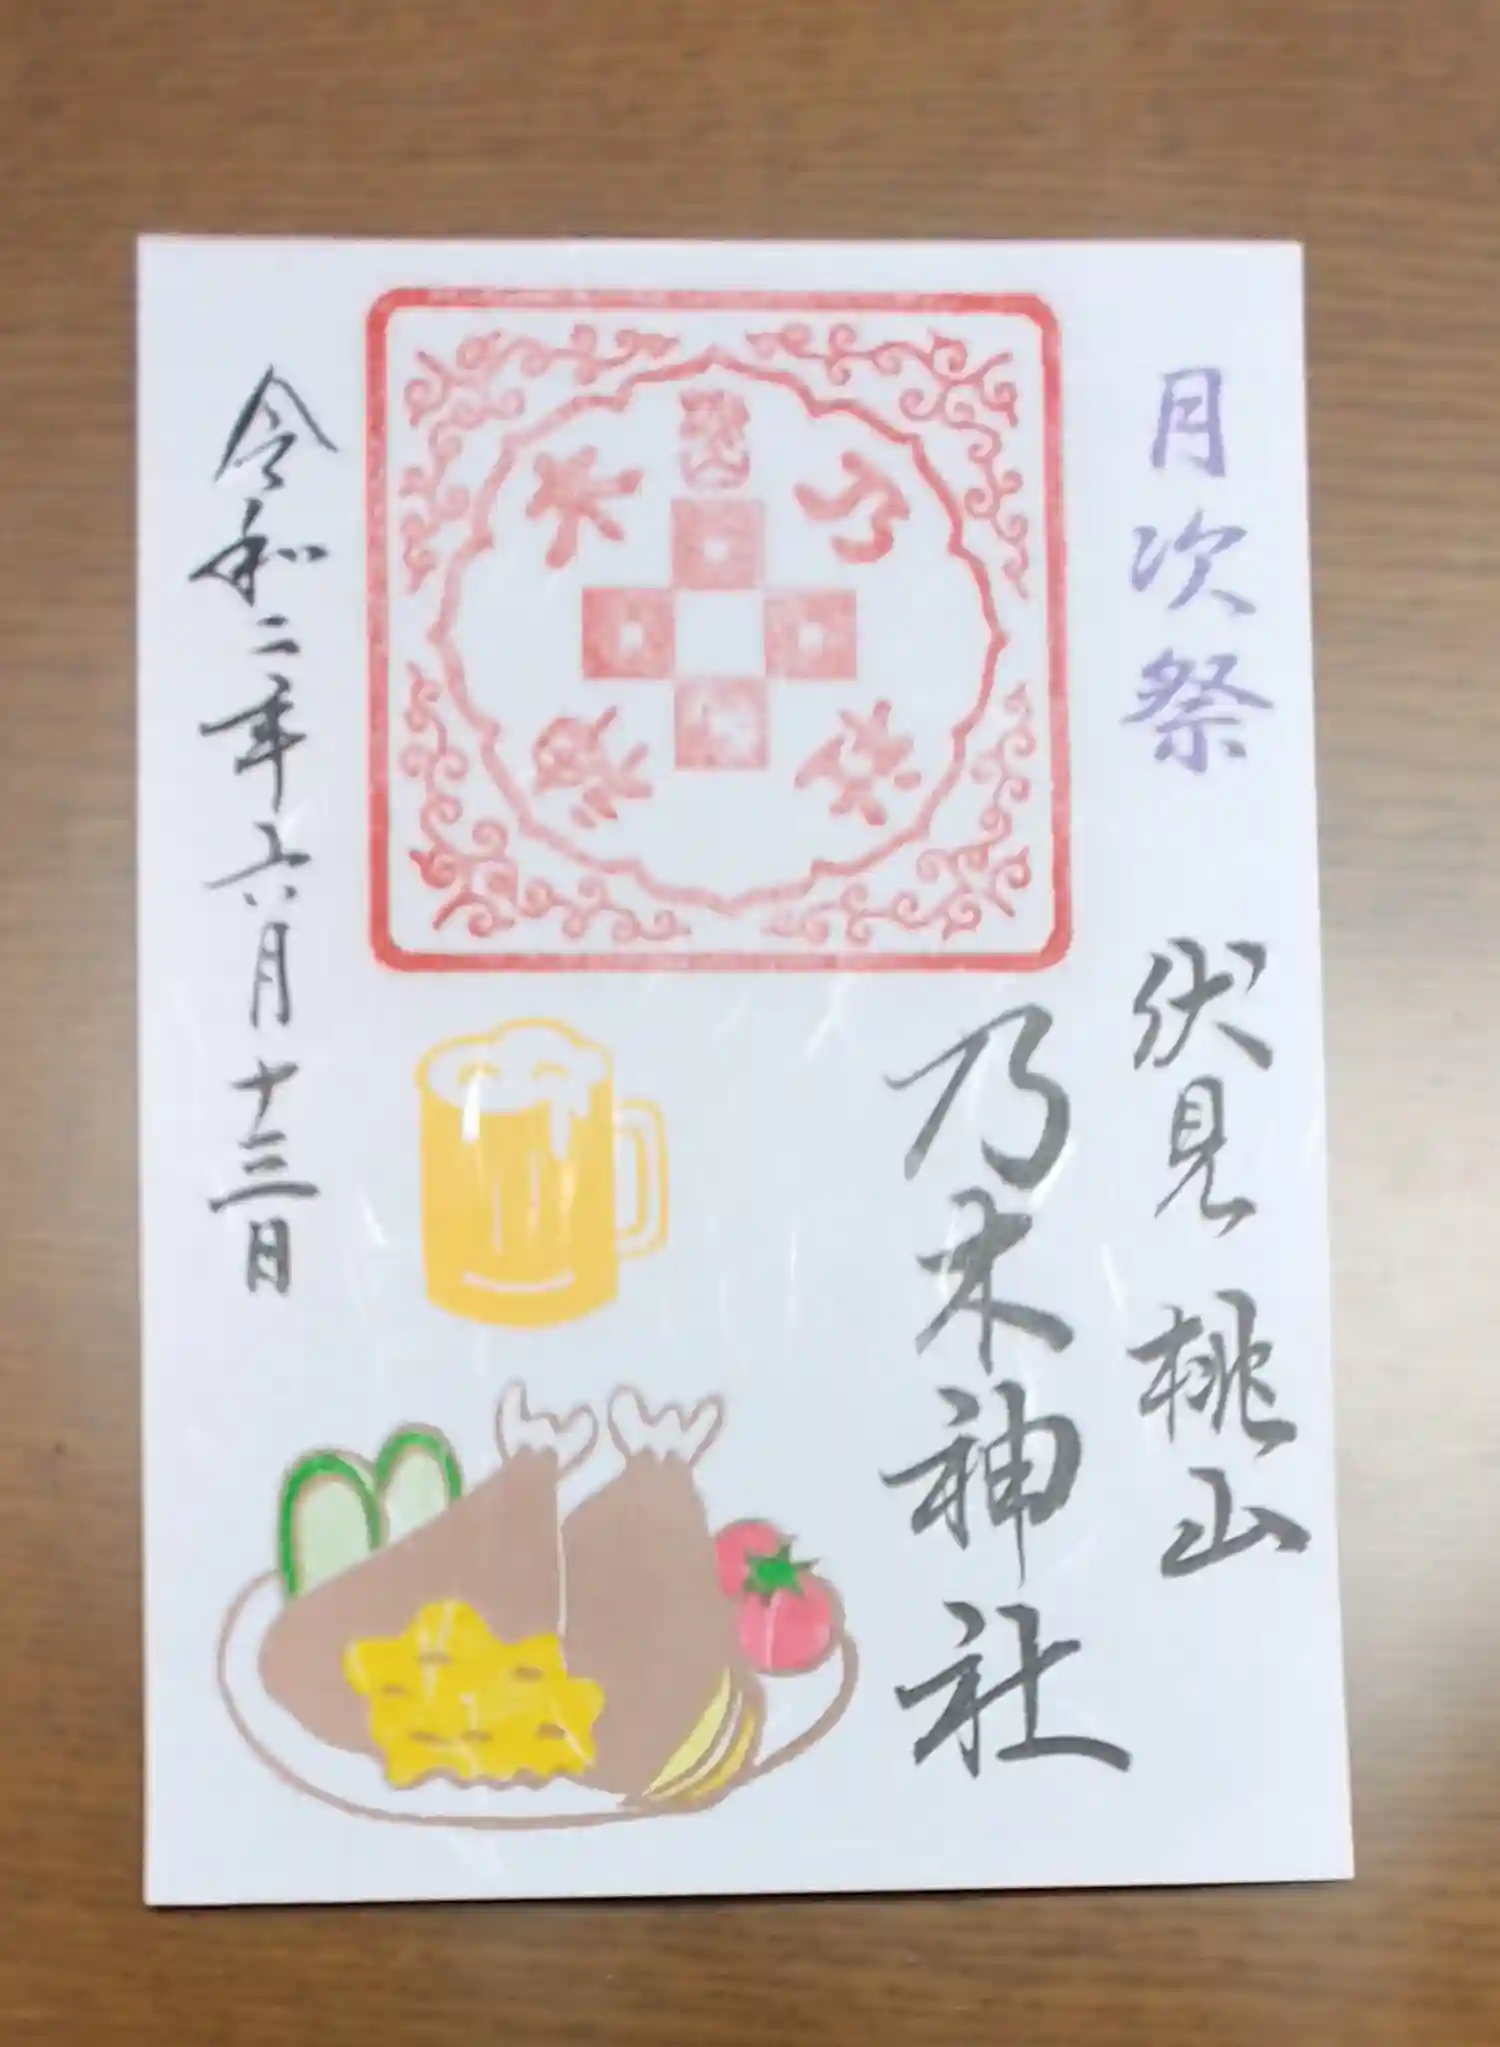 月次祭
伏見桃山
乃木神社
令和二年六月十三日